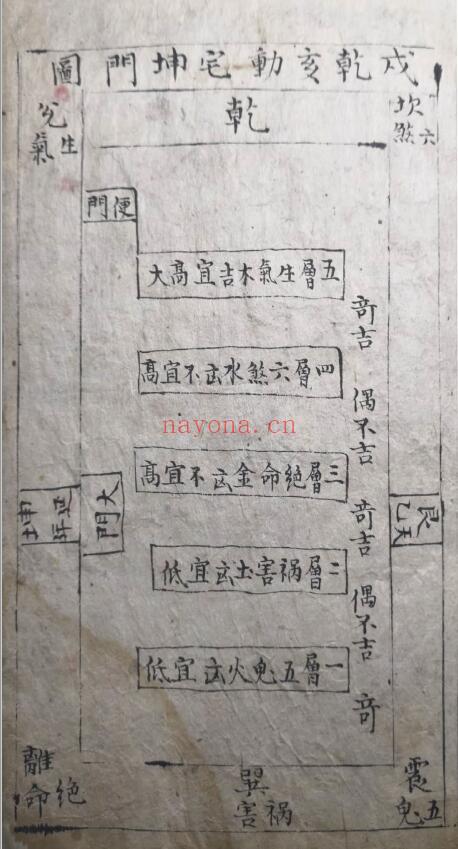 戌乾亥動宅坤門圖
乾
坎
六煞
兌
生氣
便門
五層生氣木吉宜高大
奇吉
四層六煞水㐫不宜高
偶不吉
nayona.cn
三層絕命金㐫不宜高
奇吉
大門
坤
延年
艮
天乙
二層祸害土㐫宜低
偶不吉
一層五鬼火㐫宜低
奇
震
五鬼
巽
祸害
離
絕命